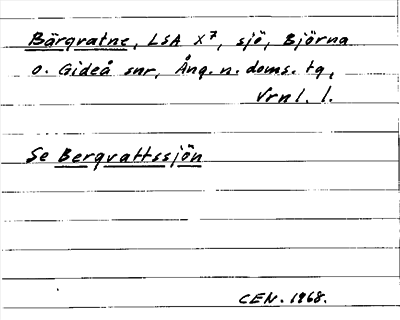 Bärgvatne, LSA X7, sjö, Björna
o. Gideå snr, Ång. n. doms. tg,
Vrnl. l.
Se Bergvattssjön
CEN. 1968.